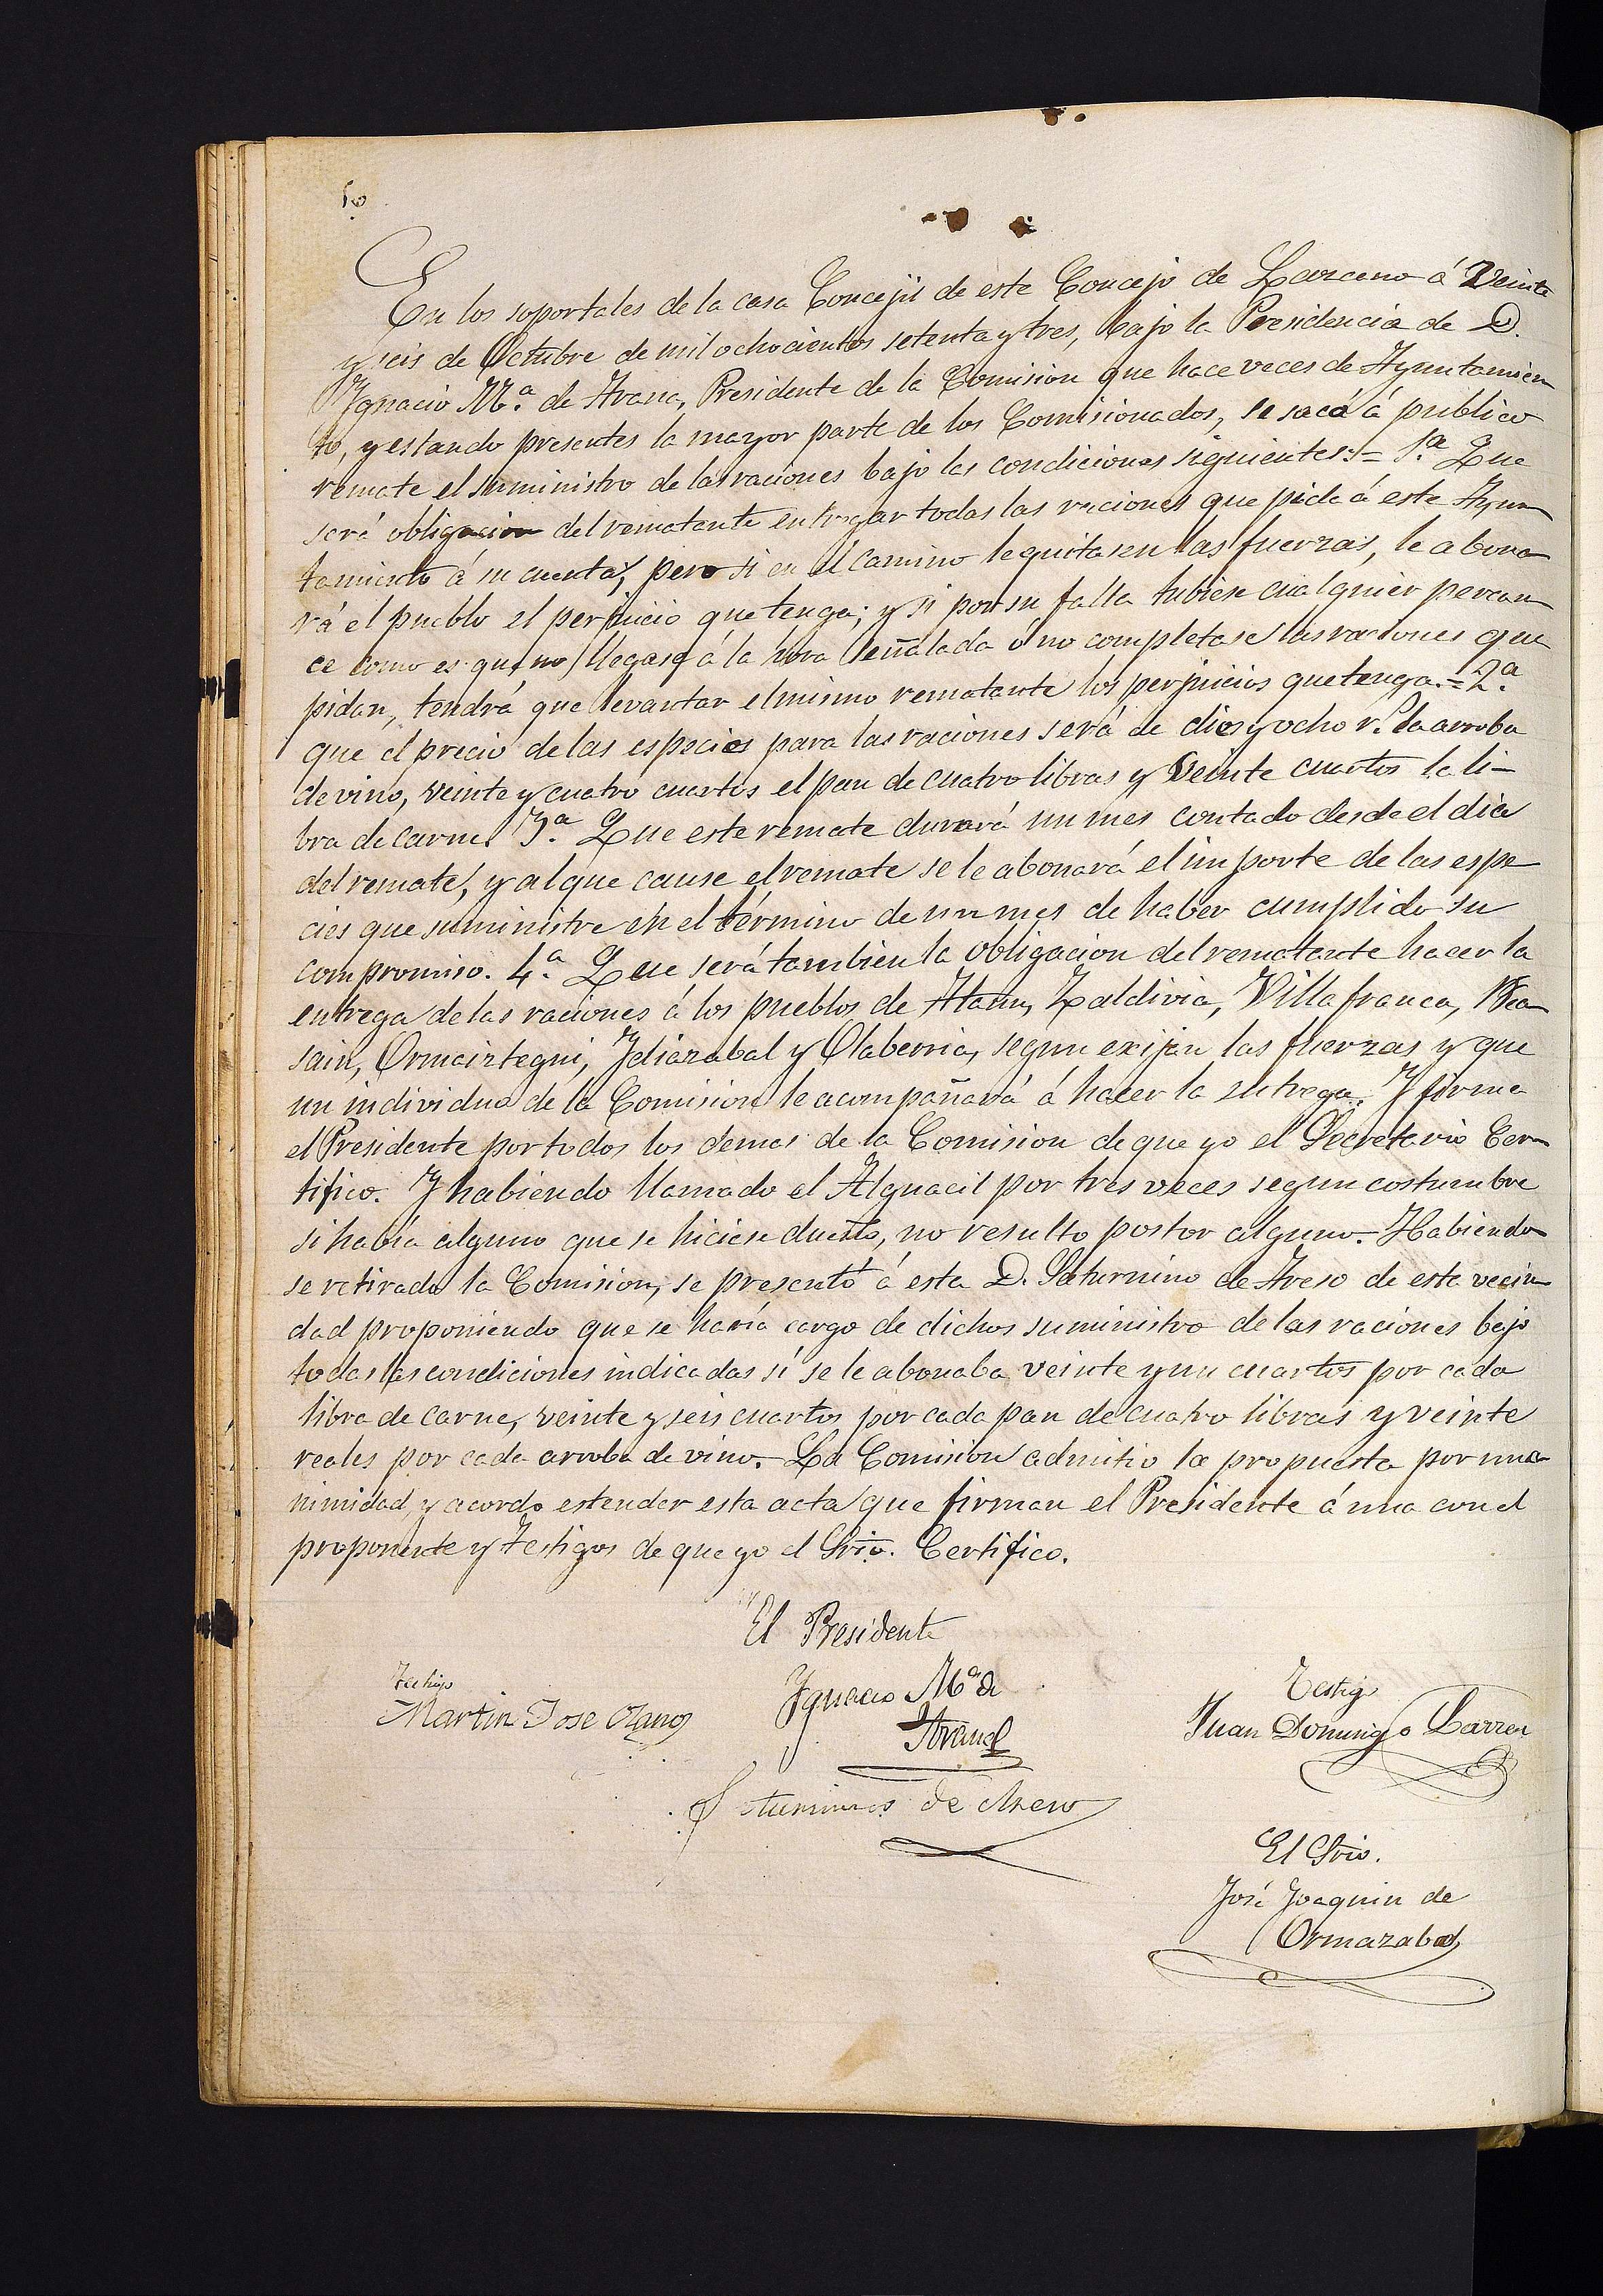 En los soportales de la casa Concejil de este Concejo de Lazcano á Veinte
y seis de Octubre de mil ochocientos setenta y tres, bajo la Presidencia de D.
Ygnacio M.ª de Arana, Presidente de la Comision que hace veces de Ayuntamien
to, y estando presentes la mayor parte de los Comisionados, se sacó á publico
remate el suministro de las raciones bajo las condiciones siguientes:= 1.ª Que
será obligacion del rematante entregar todas las raciones que pida á este Ayun
tamiento á su cuenta, pero si en el camino le quitasen las fuerzas, le abona
rá el pueblo el perjuicio que tenga; y si por su falta tubiese cualquier percan
ce como es que no llegase á la hora señalada ó no completase las raciones que
pidan, tendrá que levantar el mismo rematante los perjuicios que tenga.= 2.ª
que el precio de las especies para las raciones será de dies y ocho r.s la arroba
de vino, veinte y cuatro cuartos el pan de cuatro libras y veinte cuartos la li-
bra de carne. 3.ª Que este remate durará un mes contado desde el dia
del remate, y al que cause el remate se le abonará el importe de las espe
cies que suministre en el término de un mes de haber cumplido su
compromiso. 4.ª Que será tambien la obligacion del rematante hacer la
entrega de las raciones á los pueblos de Ataun, Zaldivia, Villafranca, Bea
sain, Ormaiztegui, Ydiazabal y Olaberria, segun exijan las fuerzas y que
un individuo de la Comision le acompañará á hacer la entrega. Y firma
el Presidente por todos los demas de la Comision de que yo el Secretario Cer
tifico. Y habiendo llamado el Alguacil por tres veces segun costumbre
si había alguno que se hiciese dueño, no resulto postor alguno. Habiendo
se retirado la Comision, se presentó á esta D. Saturnino de Areso de esta vecin
dad proponiendo que se haría cargo de dichos suministro de las raciones bajo
todas las condiciones indicadas si se le abonaba veinte y un cuartos por cada
libra de carne, veinte y seis cuartos por cada pan de cuatro libras y veinte
reales por cada arroba de vino. La Comision admitio la propuesta por una
nimidad, y acordo estender esta acta que firman el Presidente á una con el
proponente y testigos de que yo el Srio. Certifico.
El Presidente
Testigo
Martin Jose Olano
Ygnacio M.ª de
Arana
Testigo
Juan Domingo Larrea
Saturnino de Areso
El Srio.
José Joaquin de
Ormazabal